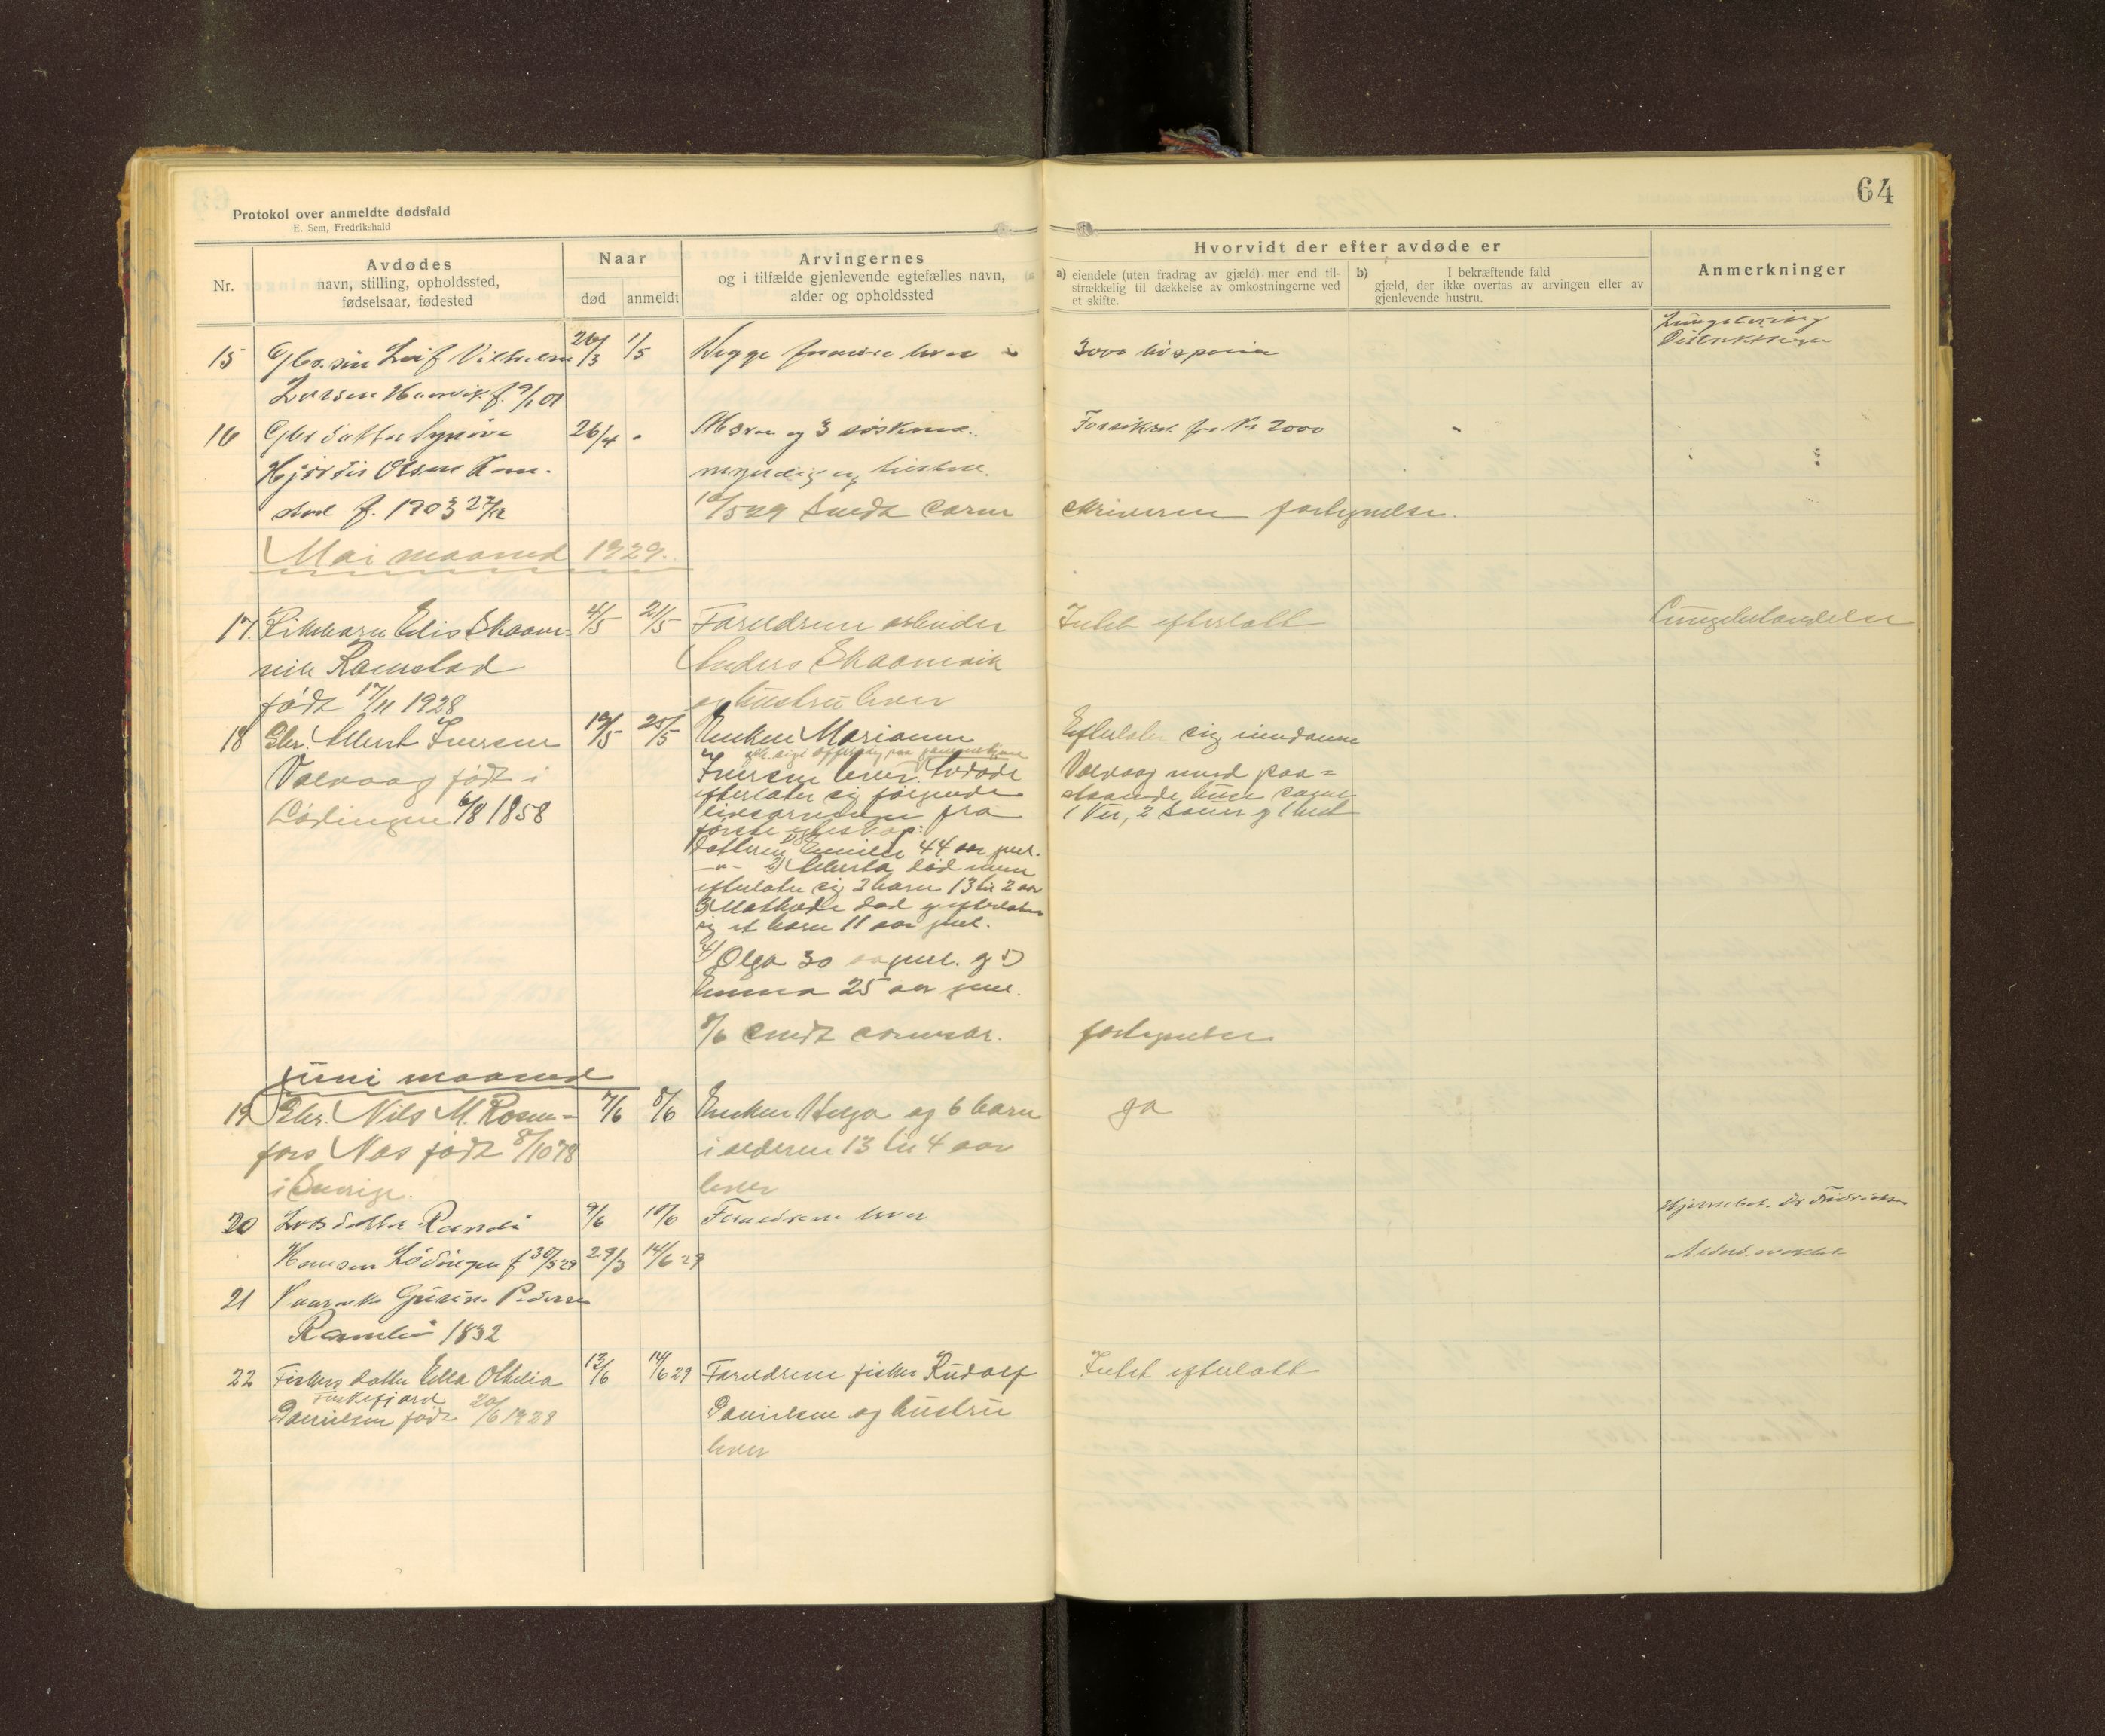 64
Protokol over anmeldte dødsfald
E. Sem, Fredrikshald
Nr.
Avdødes
navn, stilling, opholdssted,
fødselsaar, fødested
Naar
død
anmeldt
Arvingernes
og i tilfælde gjenlevende egtefælles navn,
alder og opholdssted
Hvorvidt der efter avdøde er
a) eiendele (uten fradrag av gjæld) mer end til-
strækkelig til dækkelse av omkostningerne ved
et skifte.
b) I bekræftende fald
gjæld, der ikke overtas av arvingen eller av
gjenlevende hustru.
Anmerkninger
15 Gbr. søn Leif Vilhelm 26/3 1/5
Larsen f. 9/1 01
Begge foreldre lever
3000
16 Gbr datter Synøve 26/4
Hjørdis Olsen
f. 1903 27/12
Moren og 3 søskende
myndig og
10/5 29 Sendt soren
skriveren fortegnelse.
Forsikret for Kr 2000
Mai maaned 1929.
17. Pikebarn Elis Skaan- 4/5 21/5
vik Ramstad
født 17/11 1928
Foreldrene arbeider
Anders Skaanvik
og hustru lever
Intet efterlatt
Lungebetændelse
18 Gbr. Albert Iversen 19/5 25/5
Valvaag født i
Lødingen 6/8 1858
Enken Marianne
Iversen lever. Avdøde
efterlater sig følgende
livsarvinger fra
første egteskap:
Datteren 1) Emilie 44 aar gml.
-"- 2) Alberta død men
efterlater sig 2 barn 13 til 2 aar
3) Mathilde død efterlater
sig et barn 11 aar gml.
4) Olga 30 aar gml. og 5)
Emma 25 aar gml.
8/6 sendt sorenskr.
fortegnelse
Efterlater sig eiendomm
Valvaag med paa=
staaende huse samt
1 ku, 2 sauer og 1 hest
Juni maaned
19 Gbr. Nils M. Rosen= 7/6 8/6
fors Nes født 8/10 78
i Sverige.
Enken Helga og 6 barn
i alderen 13 til 4 aar
lever
ja
20 datter Randi 9/6 10/6
Hansen Lødingen f 30/5 29 29/3 14/6 29
Foreldrene lever
21 Gurine Pedersen
1832
22 Fiskers datter Ella Othelia 13/6 14/6 29
Danielsen født 20/6 1928
Foreldrene fisker Rudolf
Danielsen og hustru
lever
Intet efterlatt